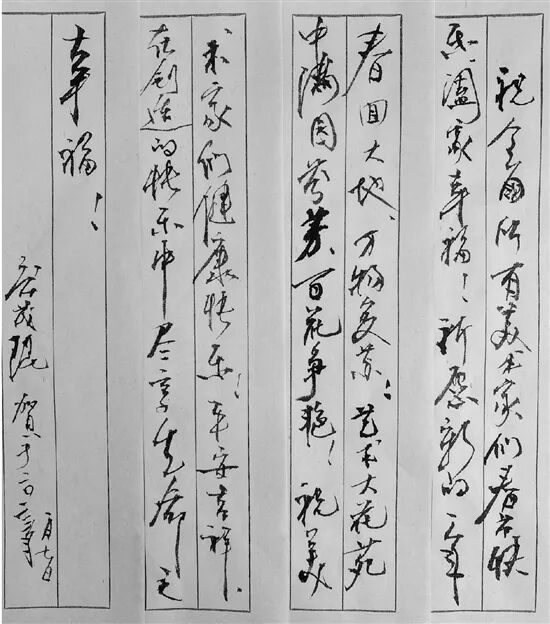 祝全国所有美术家们春节快
乐、阖家幸福!祈愿新的一年
春回大地、万物复苏;艺术大花苑
中满园芬芳、百花争艳!祝美
术家们健康快乐!平安吉祥、
在创造的快乐中尽享生命之
幸福!
贺
月七日